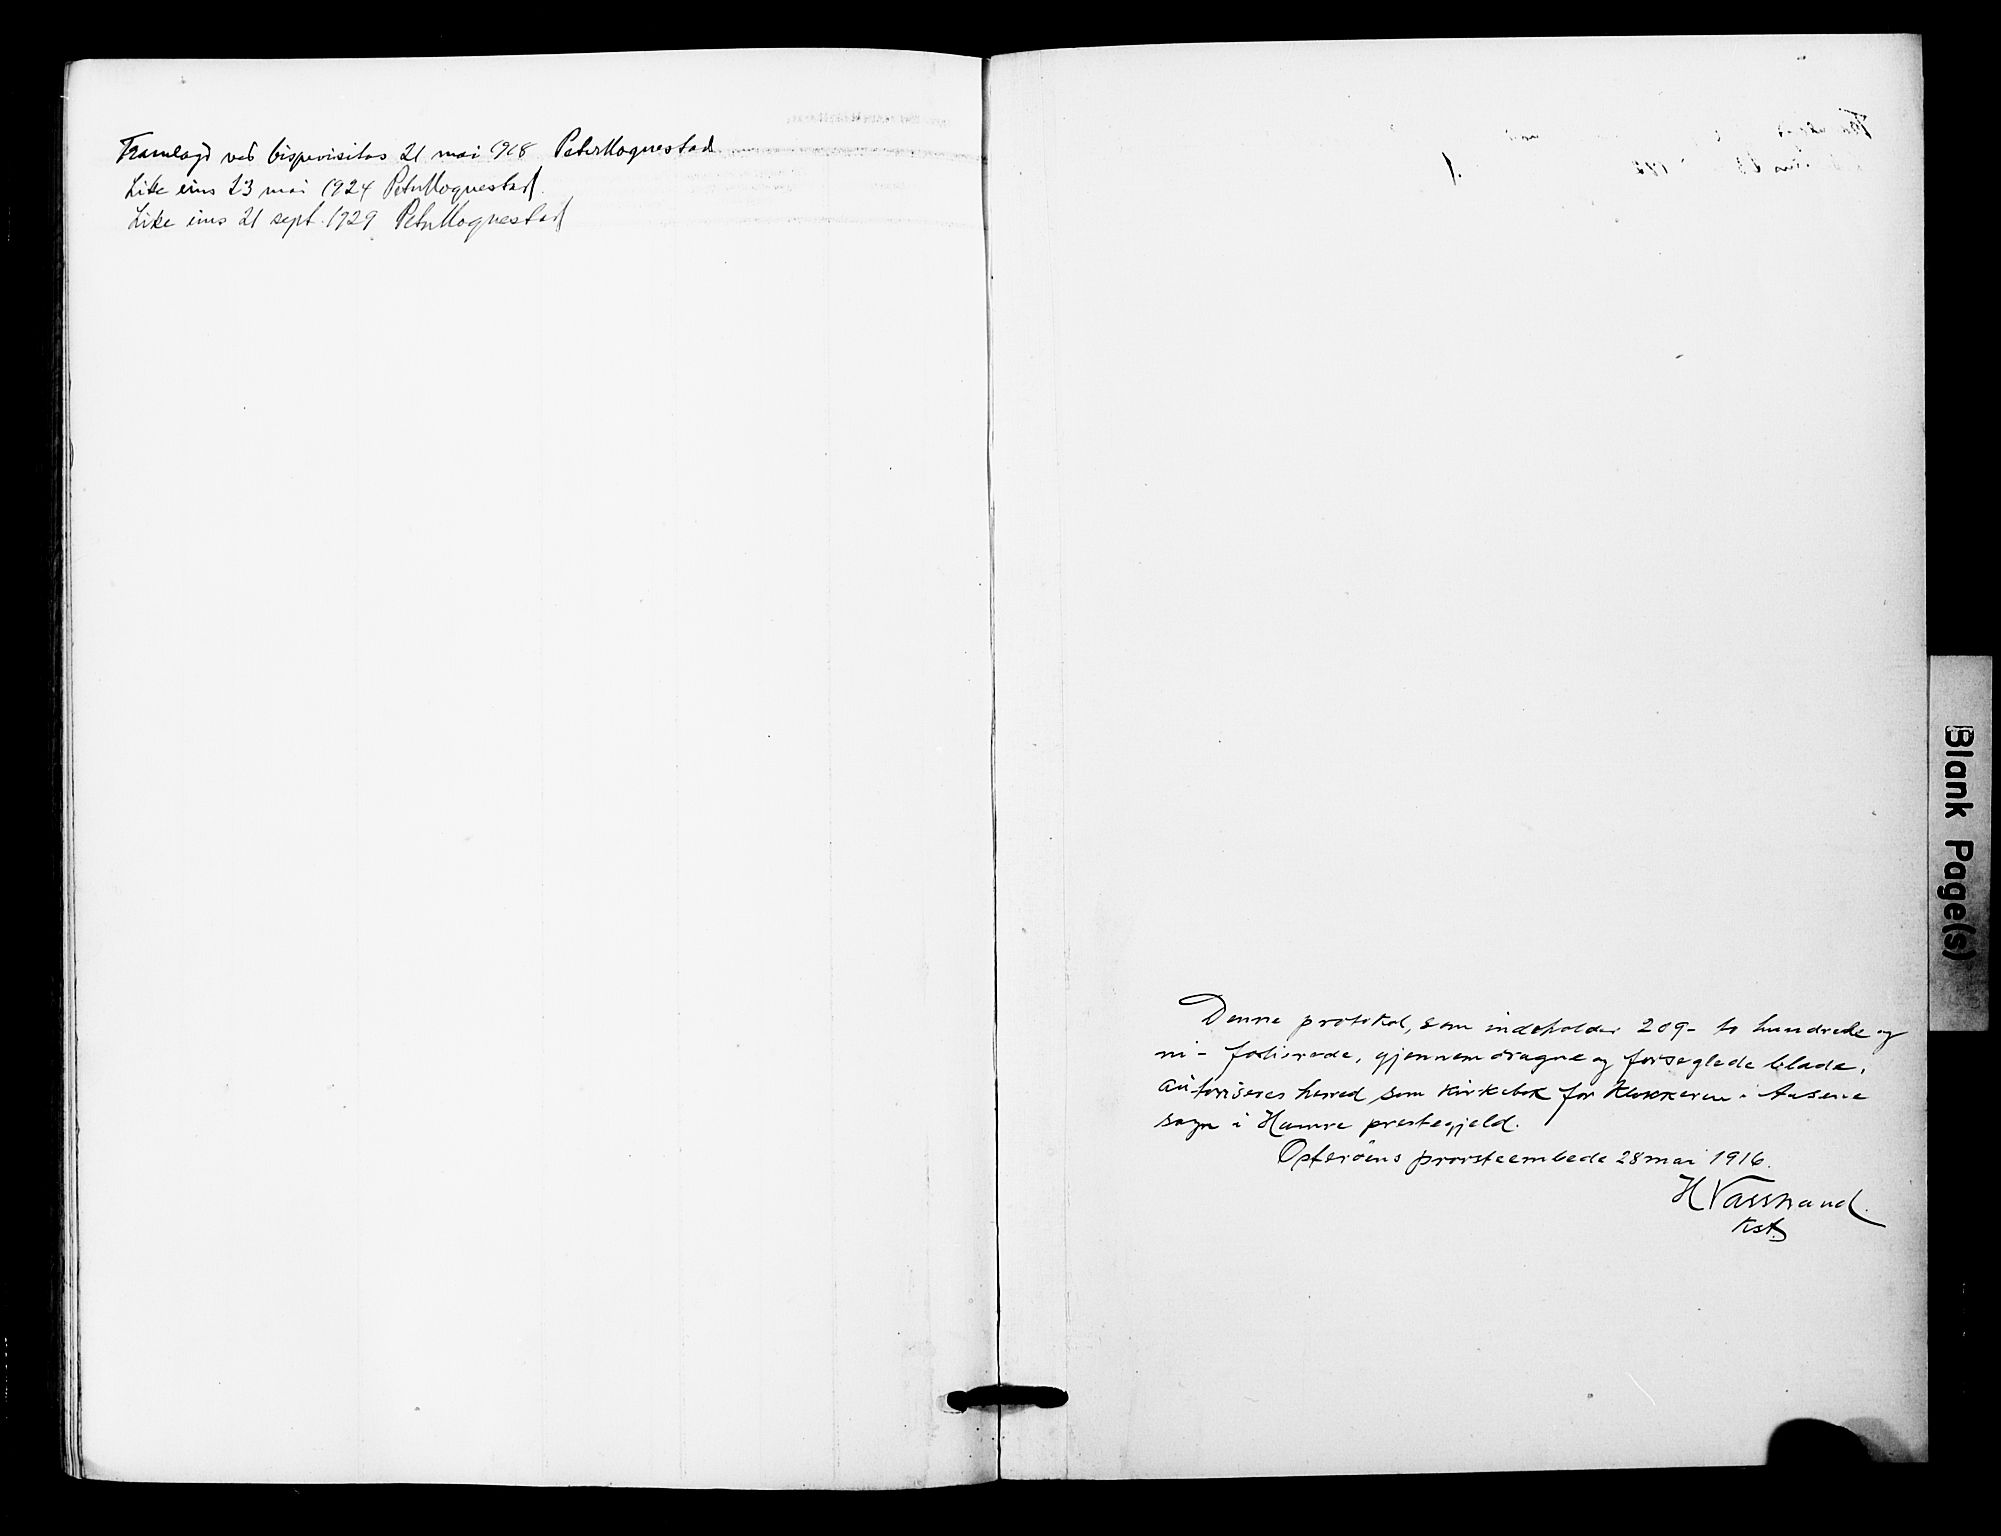 Framlagd ved bispevisitas 21 mai 1918 Peter Hognestad
Like eins 23 mai 1924 Peter Hognestad
Like eins 21 sept. 1929 Peter Hognestad
Denne protokol, som indeholder 209 - to hundrede og
ni - folierede, gjennemdragne og forseglede blade,
autoriseres herved som kirkebok for klokkeren i Aasene
sogn i Hamre prestegjeld.
Osterøens provsteembede 28 mai 1916.
H Vasstrand.
kst.
Blank Page(s)